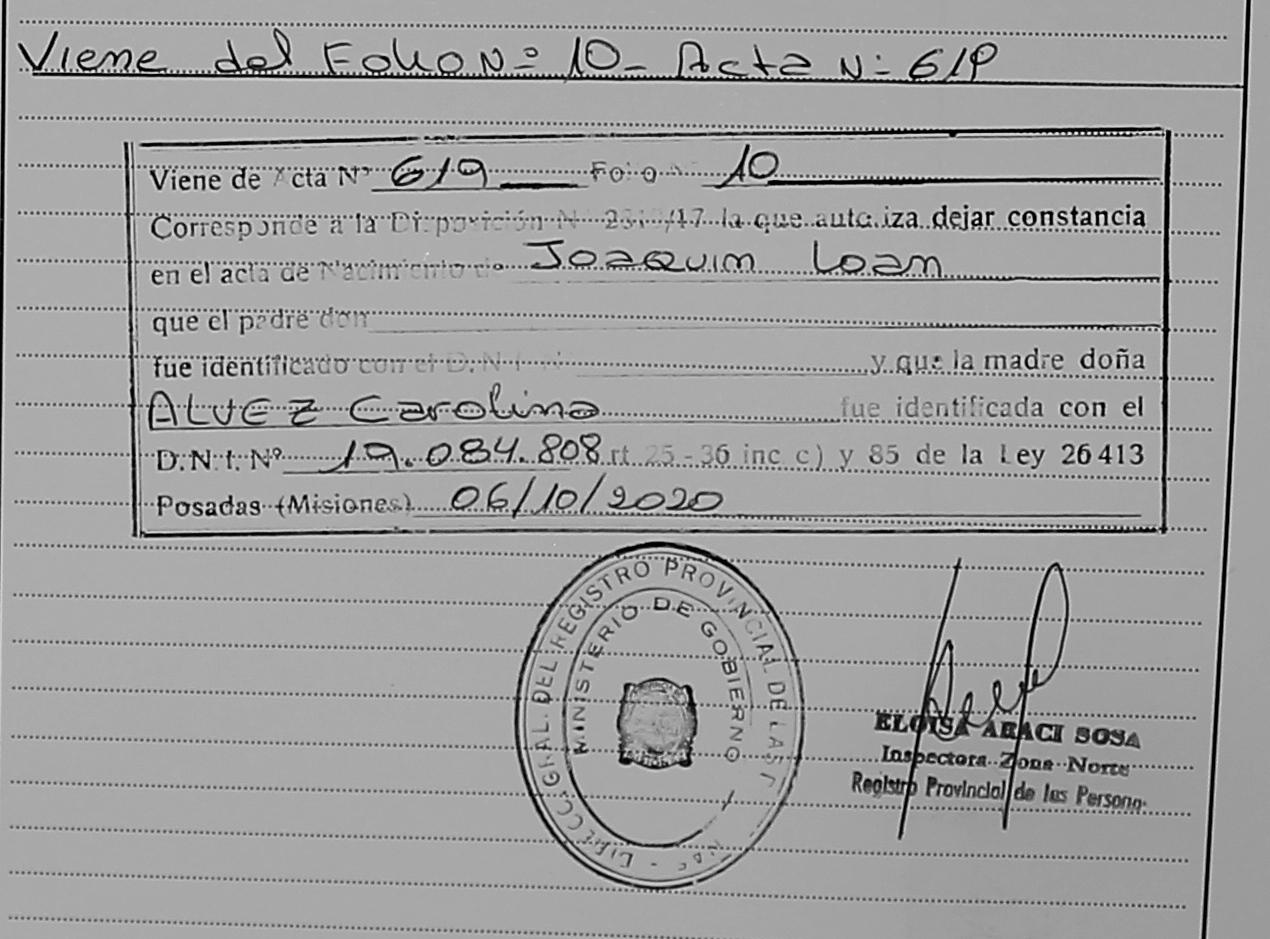 Viene del Folio Nº 10 - Acta Nº 619
Viene de Acta Nº 619 Folio Nº 10
Corresponde a la Disposición Nº /17 la que autoriza dejar constancia
en el acta de Nacimiento de Joaquim Loan
que el padre don
fue identificado con el D.N.I. Nº y que la madre doña
ALVEZ Carolina fue identificada con el
D.N.I. Nº 19.084.808 rt 25 - 36 inc c) y 85 de la Ley 26 413
Posadas (Misiones) 06/10/2020
DIRECC. GRAL. DEL REGISTRO PROVINCIAL DE LAS
MINISTERIO DE GOBIERNO
ELOISA ARACI SOSA
Inspectora Zona Norte
Registro Provincial de las Persona